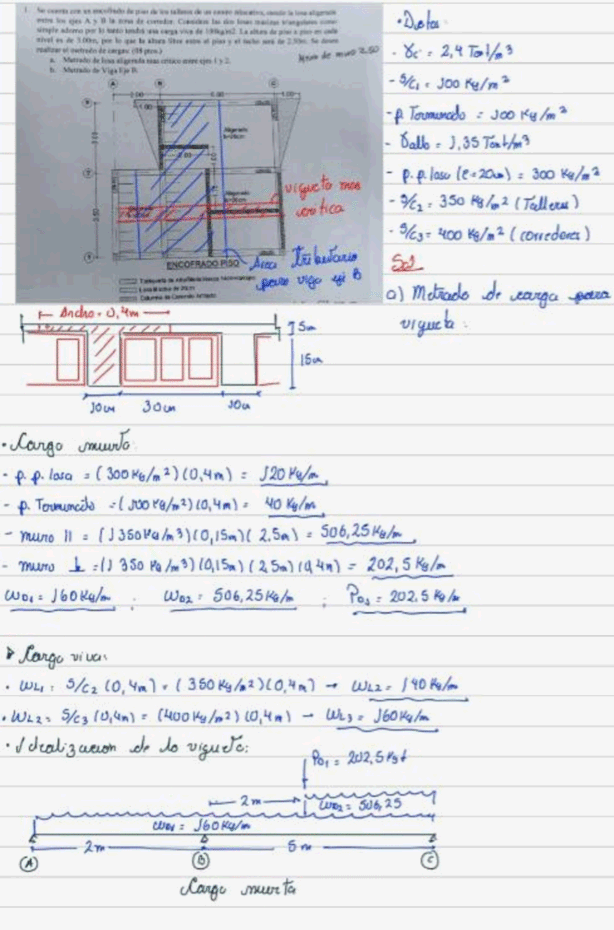 1. Se cuenta con un encofrado de piso de los talleres de un centro educativo, siendo la losa aligerada
entre los ejes A y B la zona de corredor. Considere las dos losas macizas triangulares como
simple adorno por lo tanto tendrá una carga viva de 100kg/m2. La altura de piso a piso en cada
nivel es de 3.00m, por lo que la altura libre entre el piso y el techo será de 2.50m. Se desea
realizar el metrado de cargas: (08 ptos.)
a. Metrado de losa aligerada más crítico entre ejes 1 y 2.
b. Metrado de Viga Eje B.
de muro 2.50
Aligerado
h=20cm
vigueta mas
critica
ENCOFRADO PISO
Area tributaria
para viga eje B
Losa Maciza de 20cm
Columna de Concreto Armado
• Datos
- γc = 2,4 Ton/m³
- S/C1 = 100 Kg/m²
- p. Terminado = 100 Kg/m²
- γallb = 1,35 Ton/m³
- p.p. losa (e=20cm) = 300 Kg/m²
- S/C2 = 350 Kg/m² (Talleres)
- S/C3 = 400 Kg/m² (corredores)
Sol
a) Metrado de carga para
vigueta:
Ancho = 0,4m
5cm
15cm
10cm 30cm 10cm
• Carga muerta
- p.p. losa = (300 Kg/m²)(0,4m) = 120 Kg/m
- p. Terminado = (100 Kg/m²)(0,4m) = 40 Kg/m
- muro || = (1350 Kg/m³)(0,15m)(2.5m) = 506,25 Kg/m
- muro ⊥ = (1350 Kg/m³)(0,15m)(2,5m)(0,4m) = 202,5 Kg/m
WD1 = 160 Kg/m ; WD2 = 506,25 Kg/m ; PD1 = 202.5 Kg/m
Carga viva:
• WL1 = S/C2 (0,4m) = (350 Kg/m²)(0,4m) → WL2 = 140 Kg/m
• WL2 = S/C3 (0,4m) = (400 Kg/m²)(0,4m) → WL3 = 160 Kg/m
• Idealizacion de la vigueta:
PD1 = 202,5 Kgf
2m
WD2 = 506,25
WD1 = 160 Kg/m
2m 5m
A B C
Carga muerta